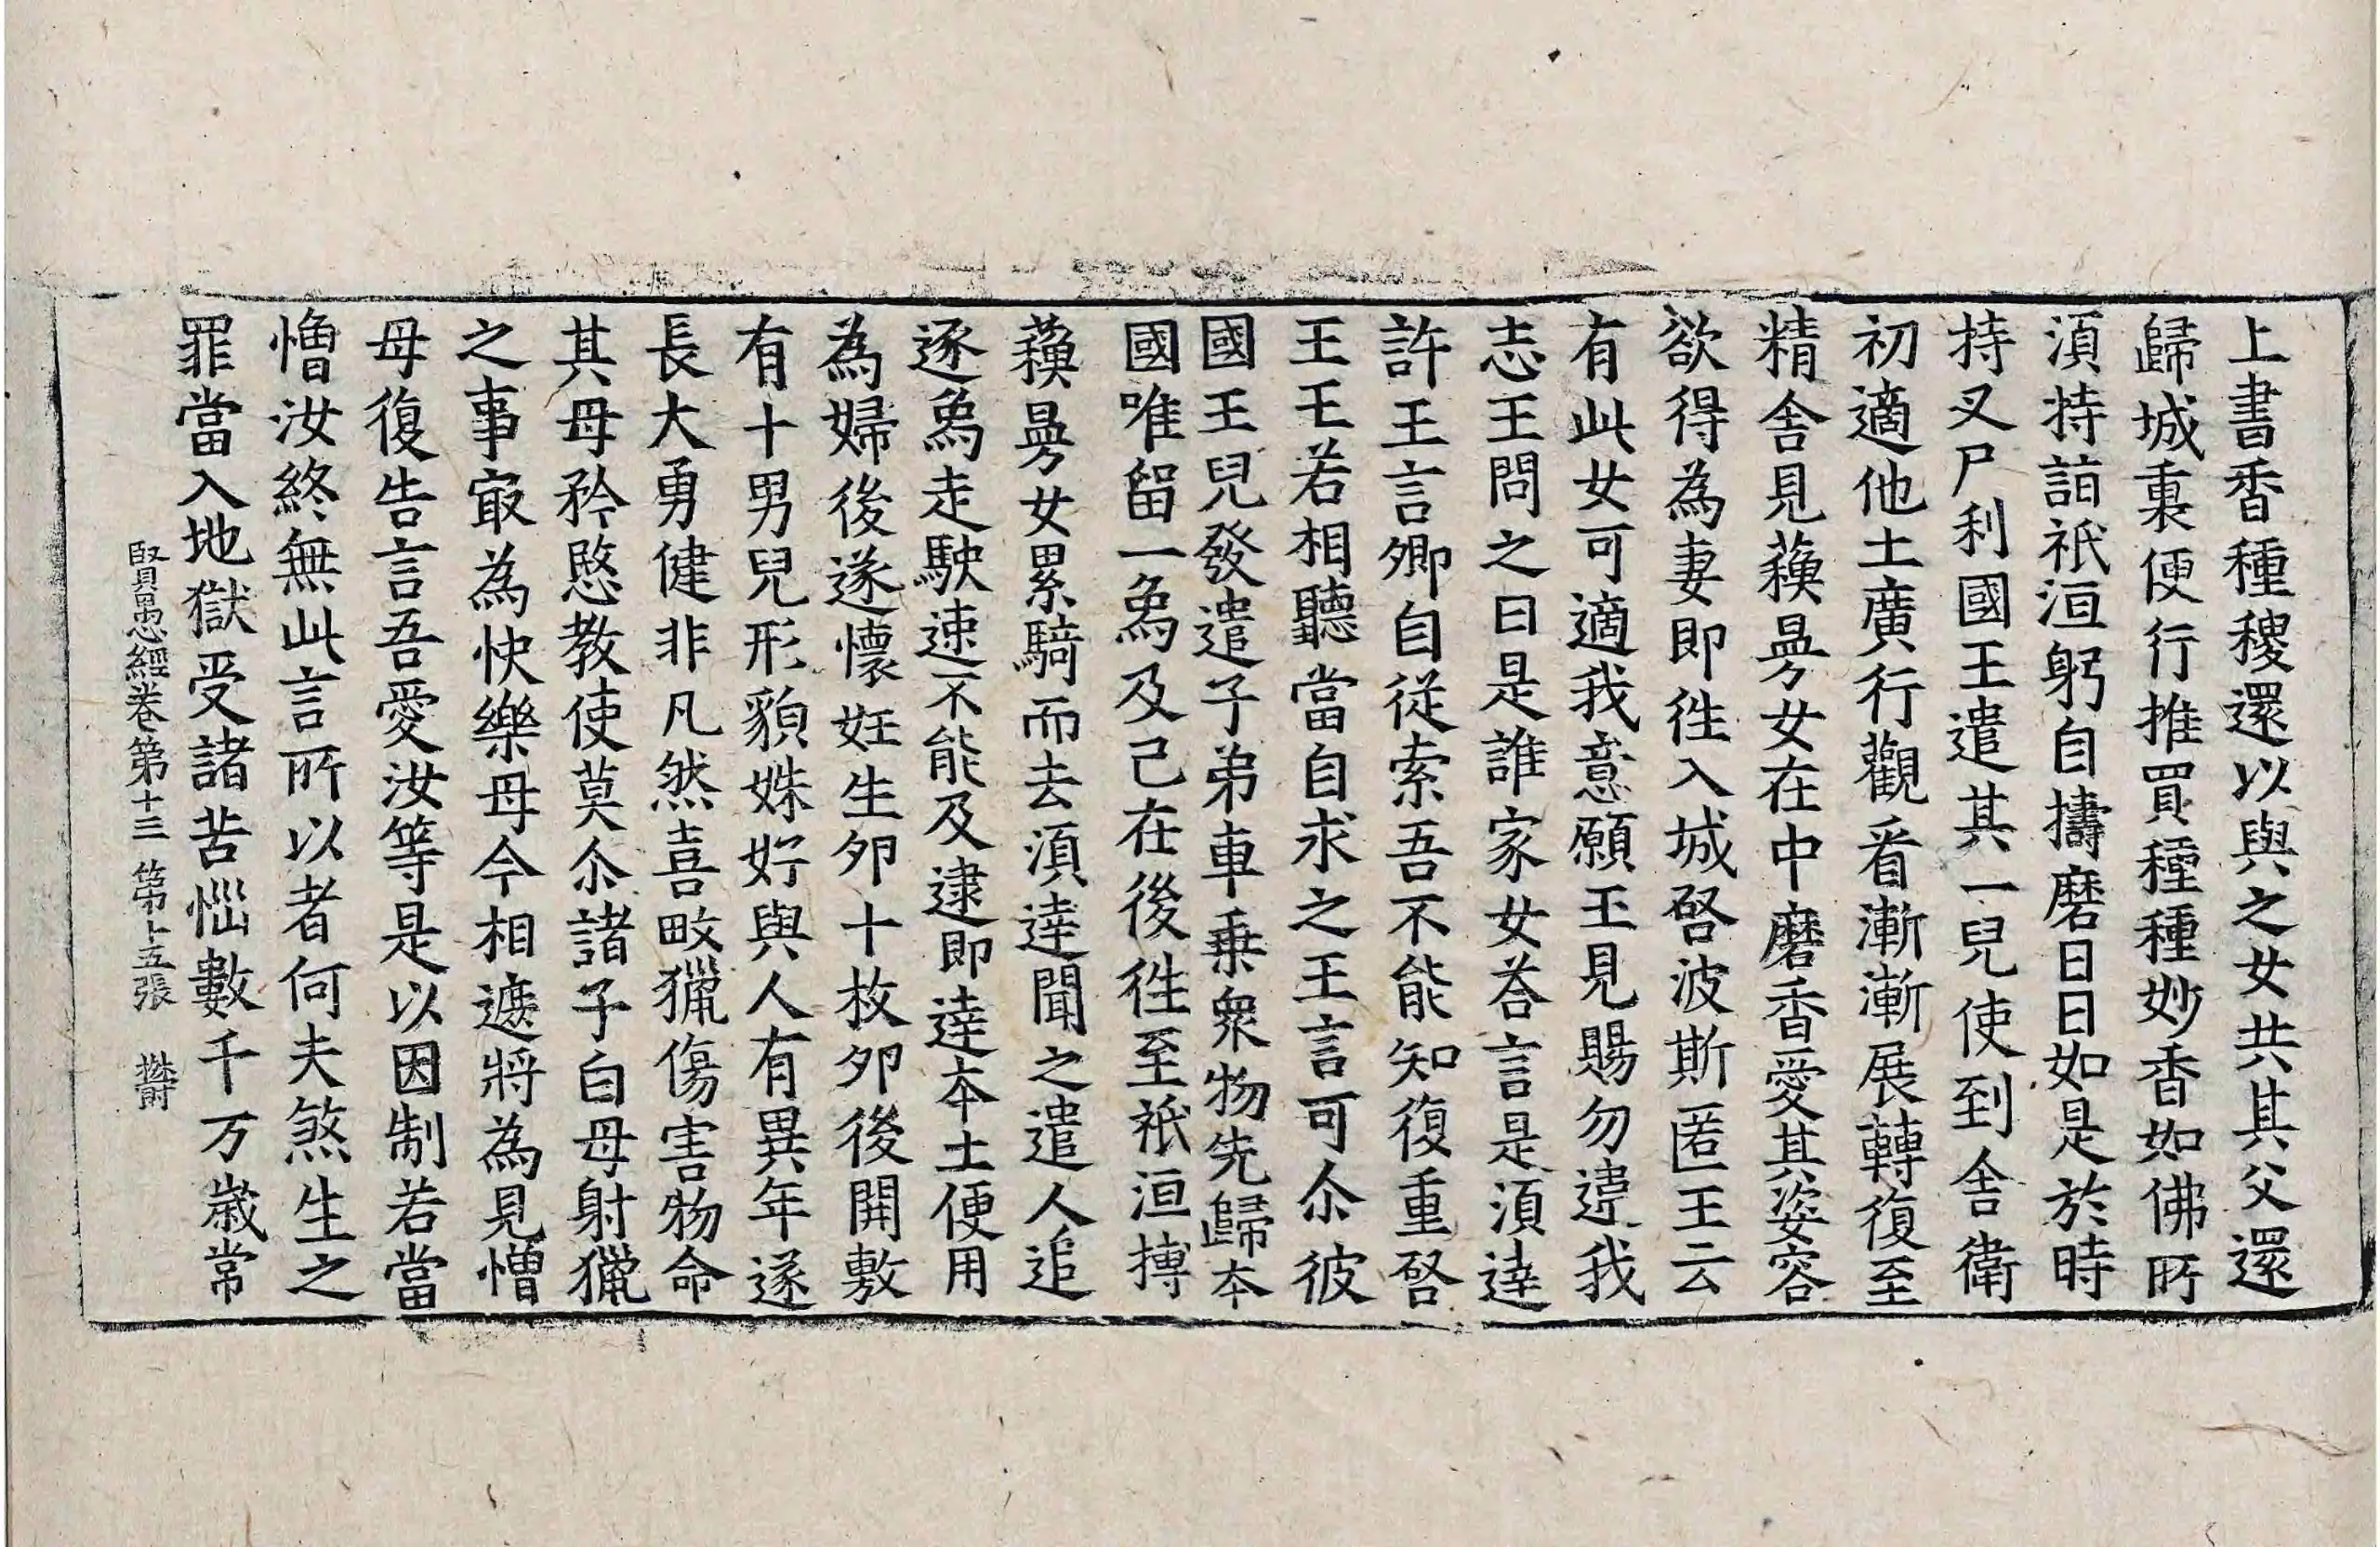 上書香種稷還以與之女共其父還
歸城稟便行推買種種妙香如佛所
湏持詣祇洹躬自擣磨日日如是於時
持叉尸利國王遣其一兒使到舍衛
初適他土廣行觀看漸漸展轉復至
精舍見蘓曼女在中磨香愛其姿容
欲得為妻即徃入城啓波斯匿王云
有此女可適我意願王見賜勿違我
志王問之曰是誰家女荅言是湏達
許王言卿自從索吾不能知復重啓
王王若相聽當自求之王言可尒彼
國王兒發遣子弟車乗衆物先歸本
國唯留一爲及己在後徃至祇洹摶
蘓曼女累騎而去湏達聞之遣人追
逐爲走駃速不能及逮即達本土便用
為婦後遂懷妊生夘十枚夘後開敷
有十男兒形貌姝好與人有異年遂
長大勇健非凡然喜畋獵傷害物命
其母矜愍教使莫尒諸子白母射獵
之事㝡為快樂母今相遮將為見憎
母復告言吾愛汝等是以因制若當
憎汝終無此言所以者何夫煞生之
罪當入地獄受諸苦惱數千万歲常
賢愚經卷第十三 第十五張